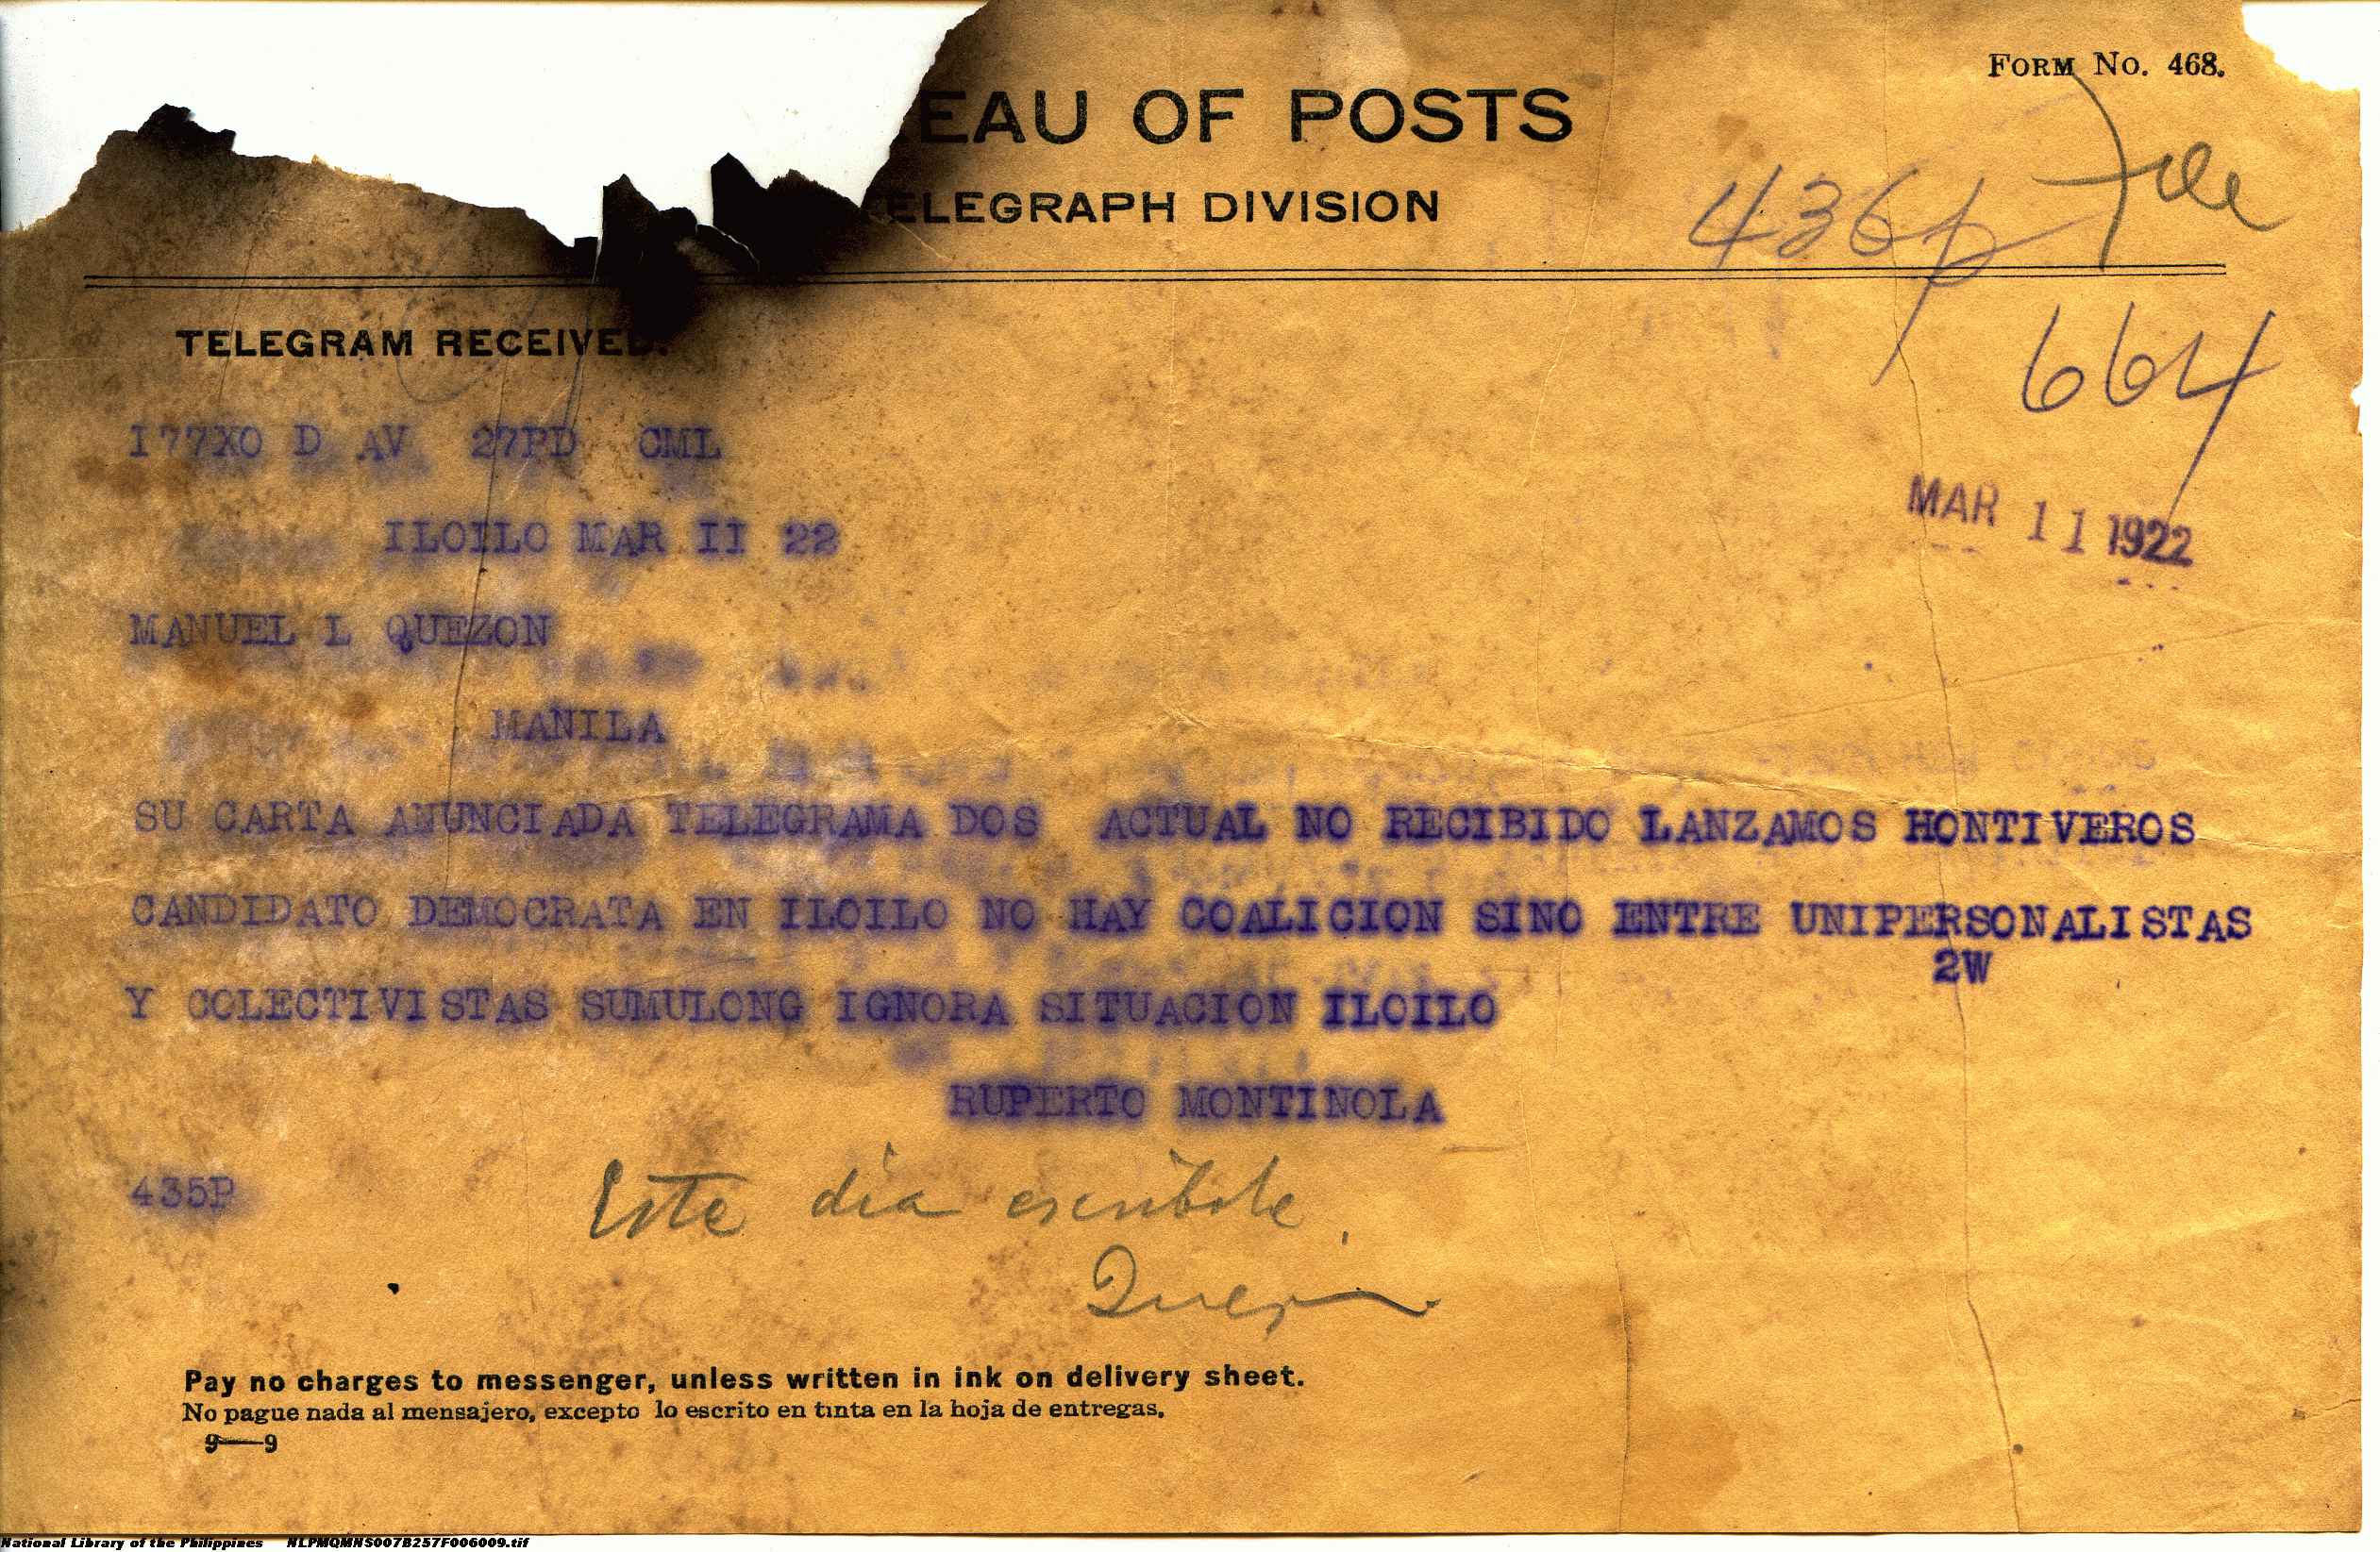 FORM No. 468.
EAU OF POSTS
ELEGRAPH DIVISION
436p
File
664
TELEGRAM RECEIVED.
I77XO D AV 27PD CML
MAR 11 1922
ILOILO MAR II 22
MANUEL L QUEZON
MANILA
SU CARTA ANUNCIADA TELEGRAMA DOS ACTUAL NO RECIBIDO LANZAMOS HONTIVEROS
CANDIDATO DEMOCRATA EN ILOILO NO HAY COALICION SINO ENTRE UNIPERSONALISTAS
2W
Y COLECTIVISTAS SUMULONG IGNORA SITUACION ILOILO
RUPERTO MONTINOLA
435P
Este dia escribole
Quezon
Pay no charges to messenger, unless written in ink on delivery sheet.
No pague nada al mensajero, excepto lo escrito en tinta en la hoja de entregas.
9—9
National Library of the Philippines NLPMQMNS007B257F006009.tif